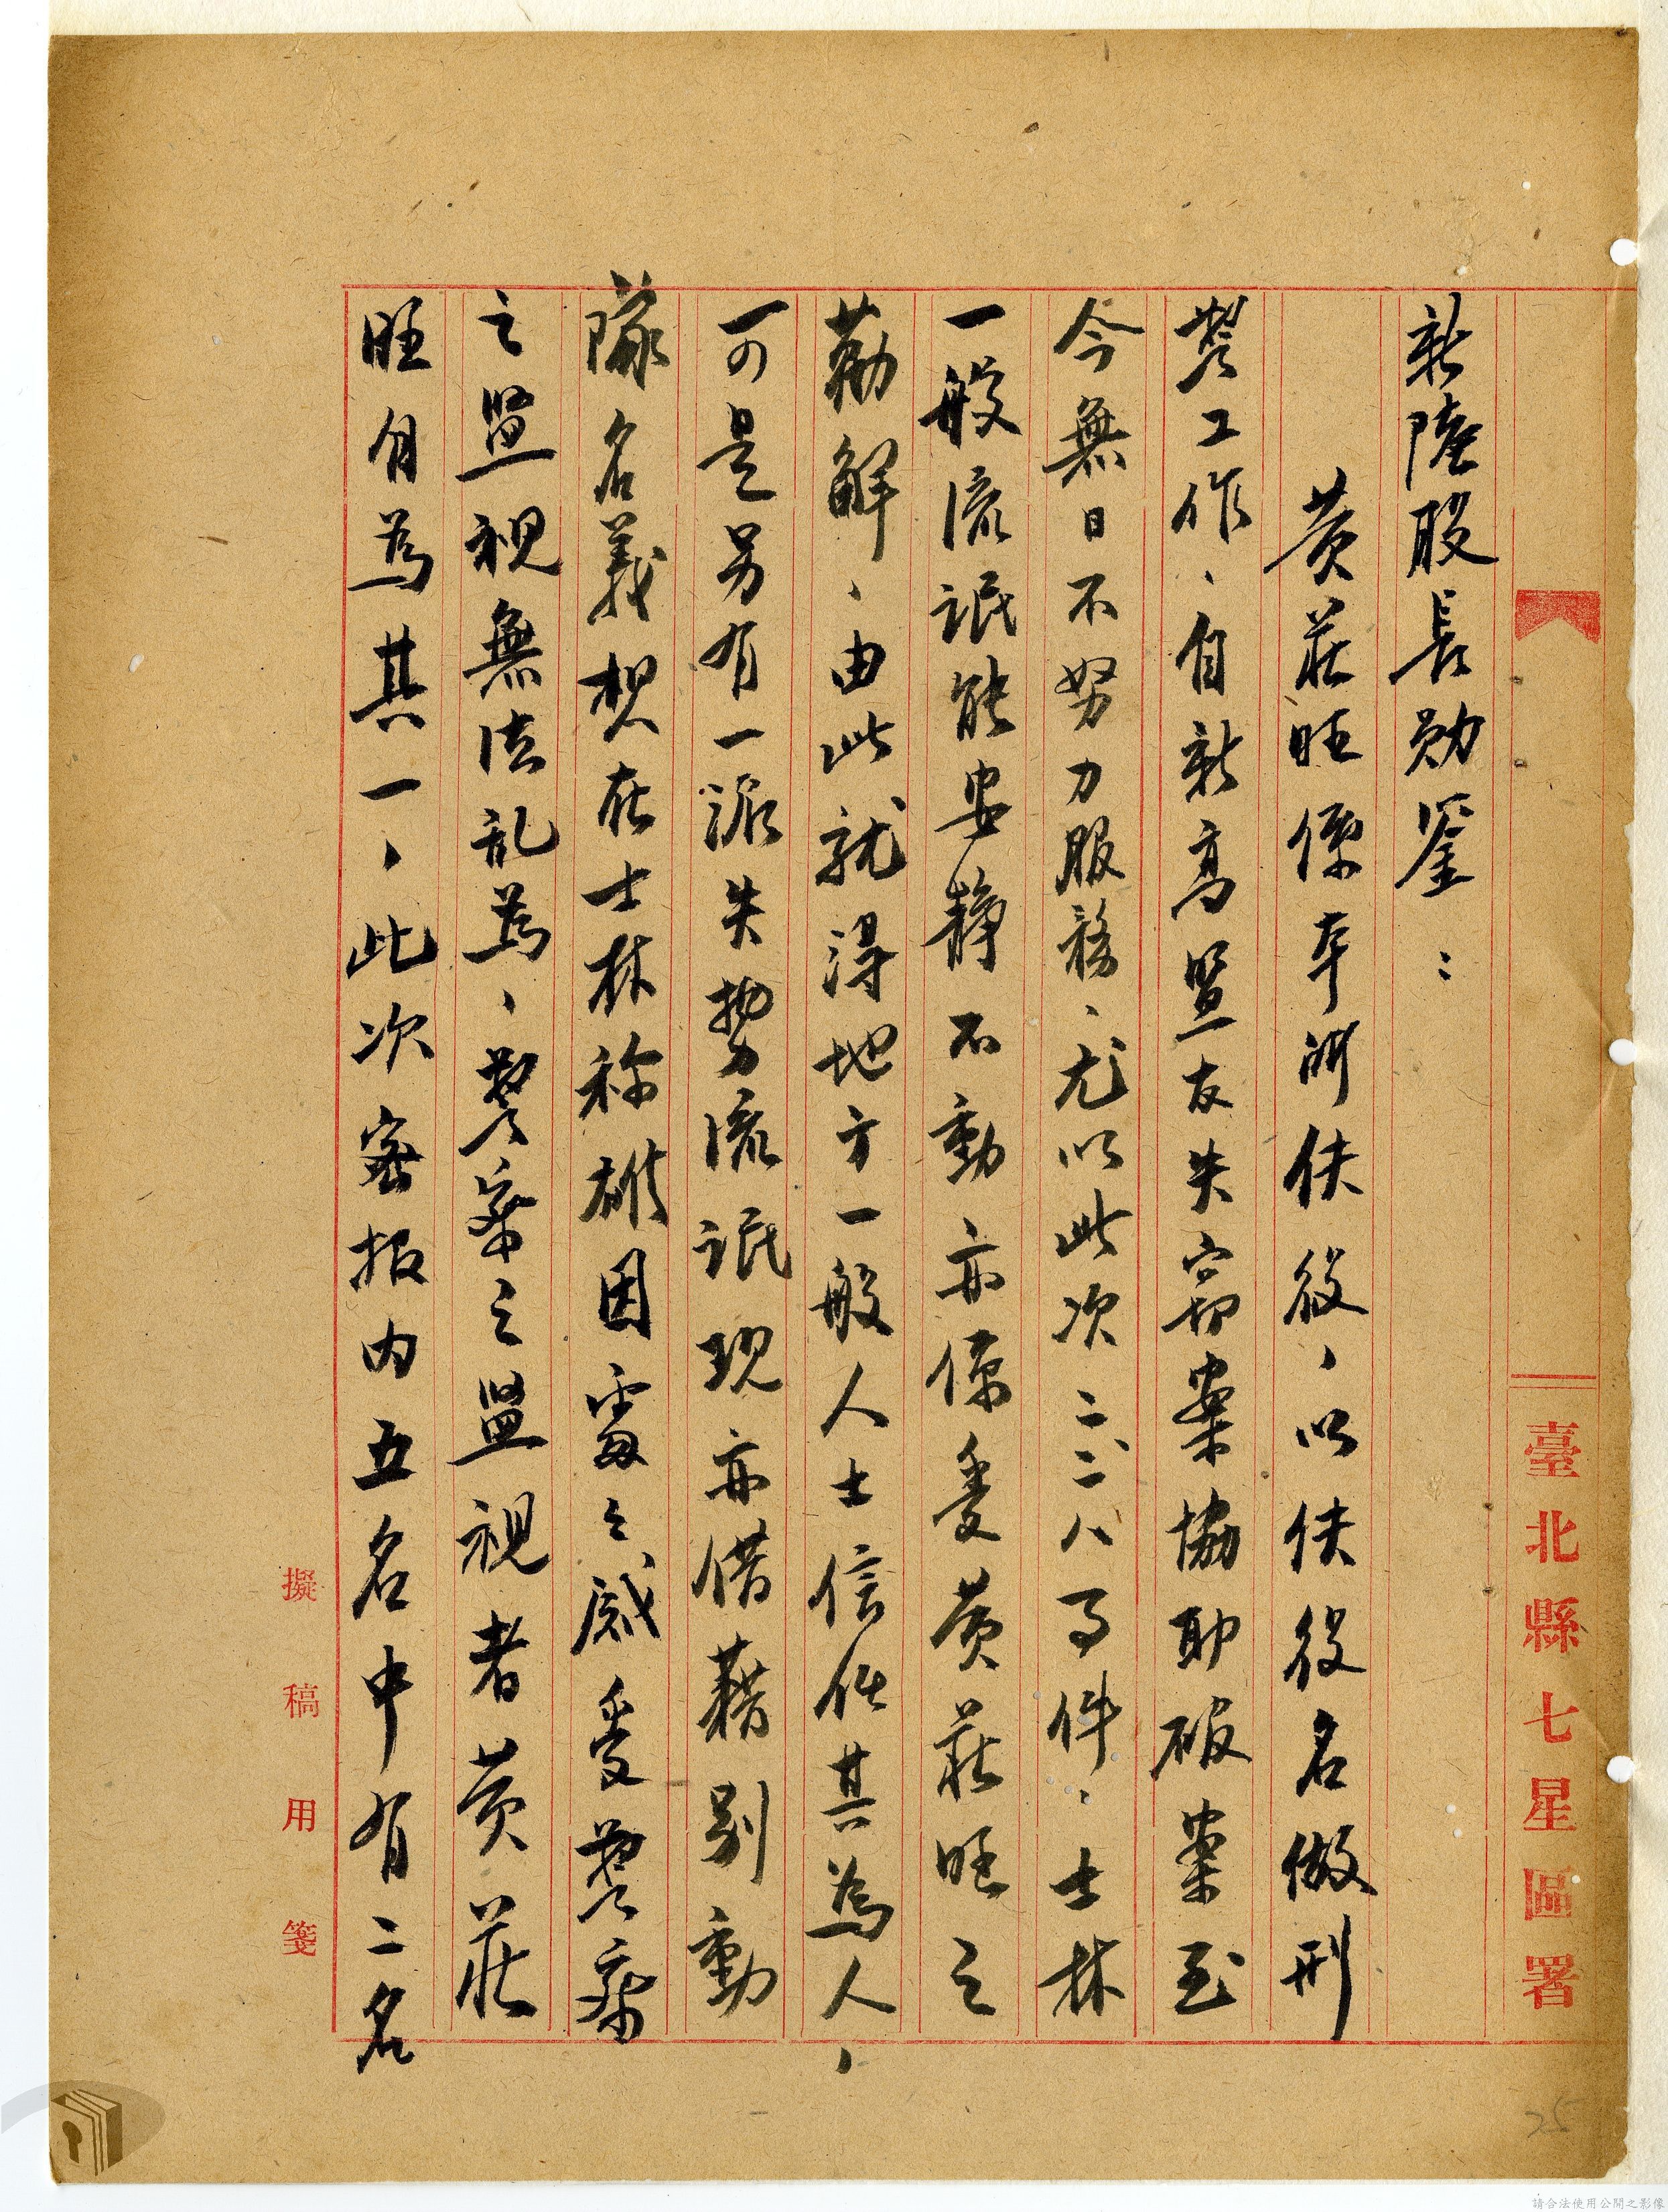 臺北縣七星區署
新陸股長勛鑒：
黃莊旺係本所伕役、以伕役名做刑
警工作、自新高盟友失竊案協助破案至
今無日不努力服務、尤以此次二、二八事件、士林
一般流氓能安靜不動亦係受黃莊旺之
勸解、由此就得地方一般人士信任其為人、
可是另有一派失勢流氓現亦借藉別動
隊名義想在士林称雄因屡々感受警察
之監視無法乱為、警察之監視者黃莊
旺自為其一、此次密报内五名中有二名
擬稿用箋
25
請合法使用公開之影像